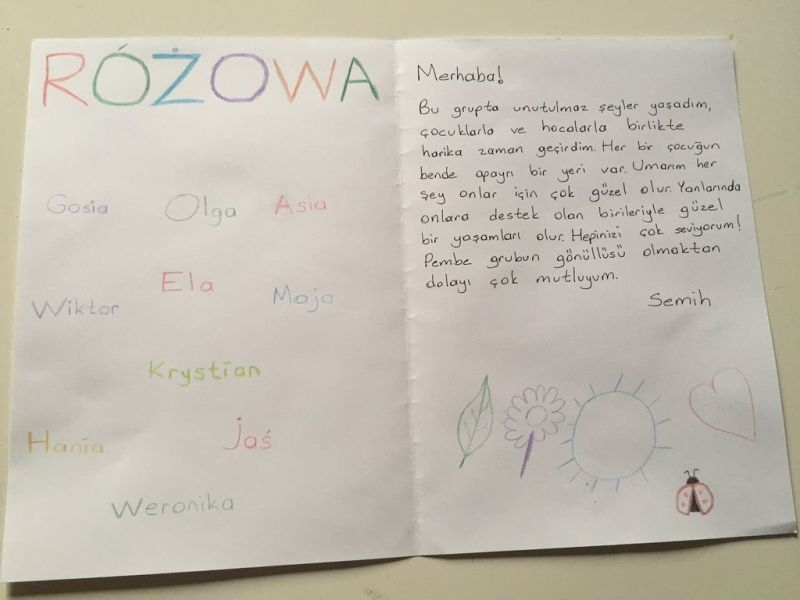 RÓŻOWA
Gosia Olga Asia
Wiktor Ela Maja
Krystian
Hania Jaś
Weronika
Merhaba!
Bu grupta unutulmaz şeyler yaşadım,
çocuklarla ve hocalarla birlikte
harika zaman geçirdim. Her bir çocuğun
bende apayrı bir yeri var. Umarım her
şey onlar için çok güzel olur. Yanlarında
onlara destek olan birileriyle güzel
bir yaşamları olur. Hepinizi çok seviyorum!
Pembe grubun gönüllüsü olmaktan
dolayı çok mutluyum.
Semih